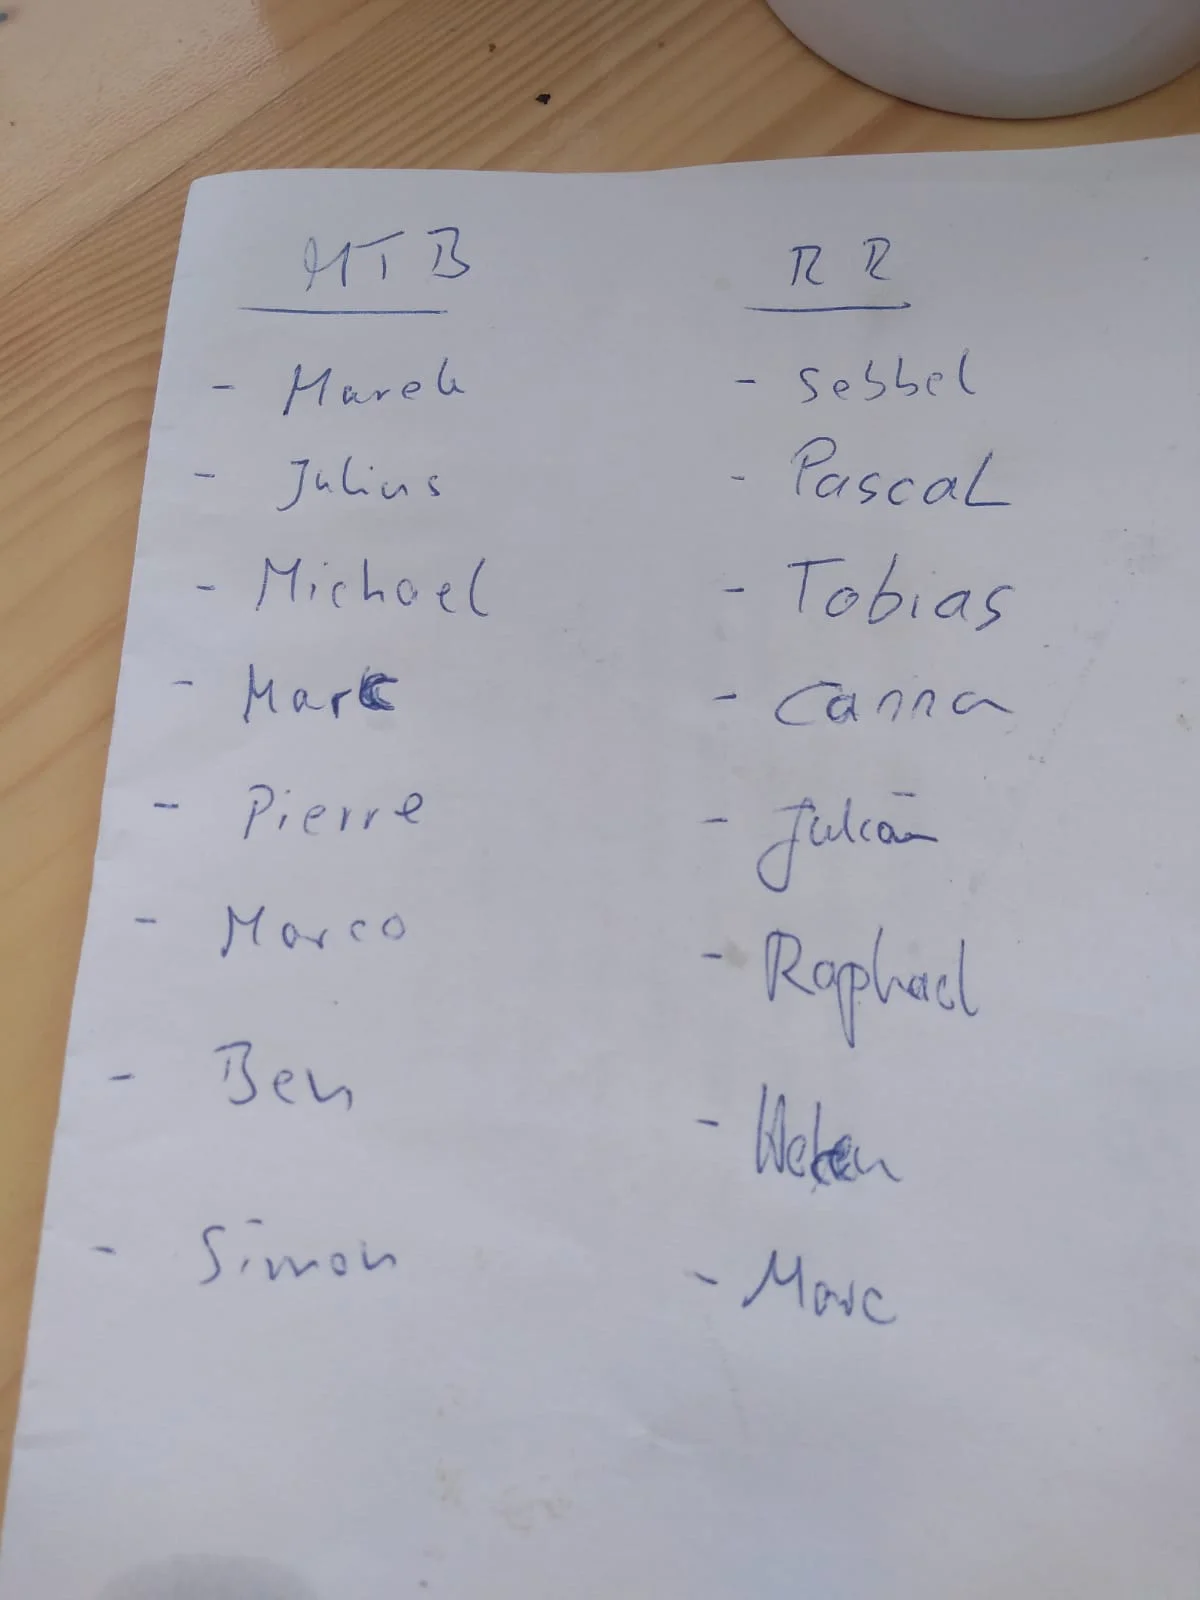 MTB
- Marek
- Julius
- Michael
- Marc
- Pierre
- Marco
- Ben
- Simon
RR
- Sebbel
- Pascal
- Tobias
- Canna
- Julian
- Raphael
- Marc